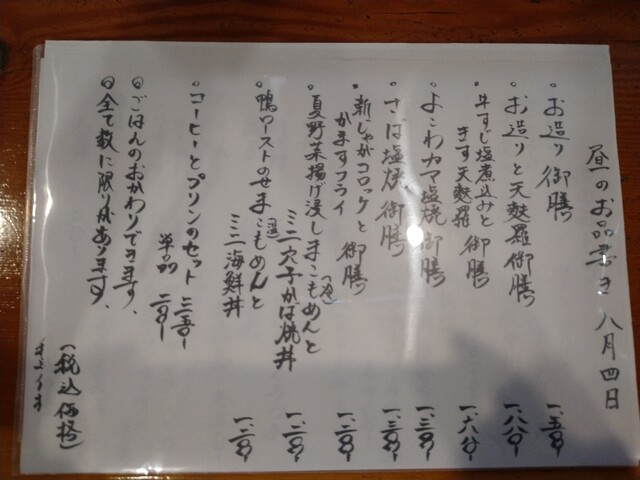 昼のお品書き 八月四日
。お造り御膳 一、五〇〇
。お造りと天麩羅御膳 一、八〇〇
。牛すじ塩煮込みと
きす天麩羅 御膳 一、六〇〇
。よこわカマ塩焼御膳 一、三〇〇
。さば塩焼 御膳 一、三〇〇
。新じゃがコロッケと
かますフライ 御膳 一、二〇〇
。夏野菜揚げ浸しまこもめん(冷)と
ミニ穴子かば焼丼 一、二〇〇
。鴨ローストのせまこもめん(温)と
ミニ海鮮丼 一、二〇〇
。コーヒーとプリンのセット 三五〇
単品 二〇〇
◎ごはんのおかわりできます、
◎全て数に限りがあります、
(税込価格)